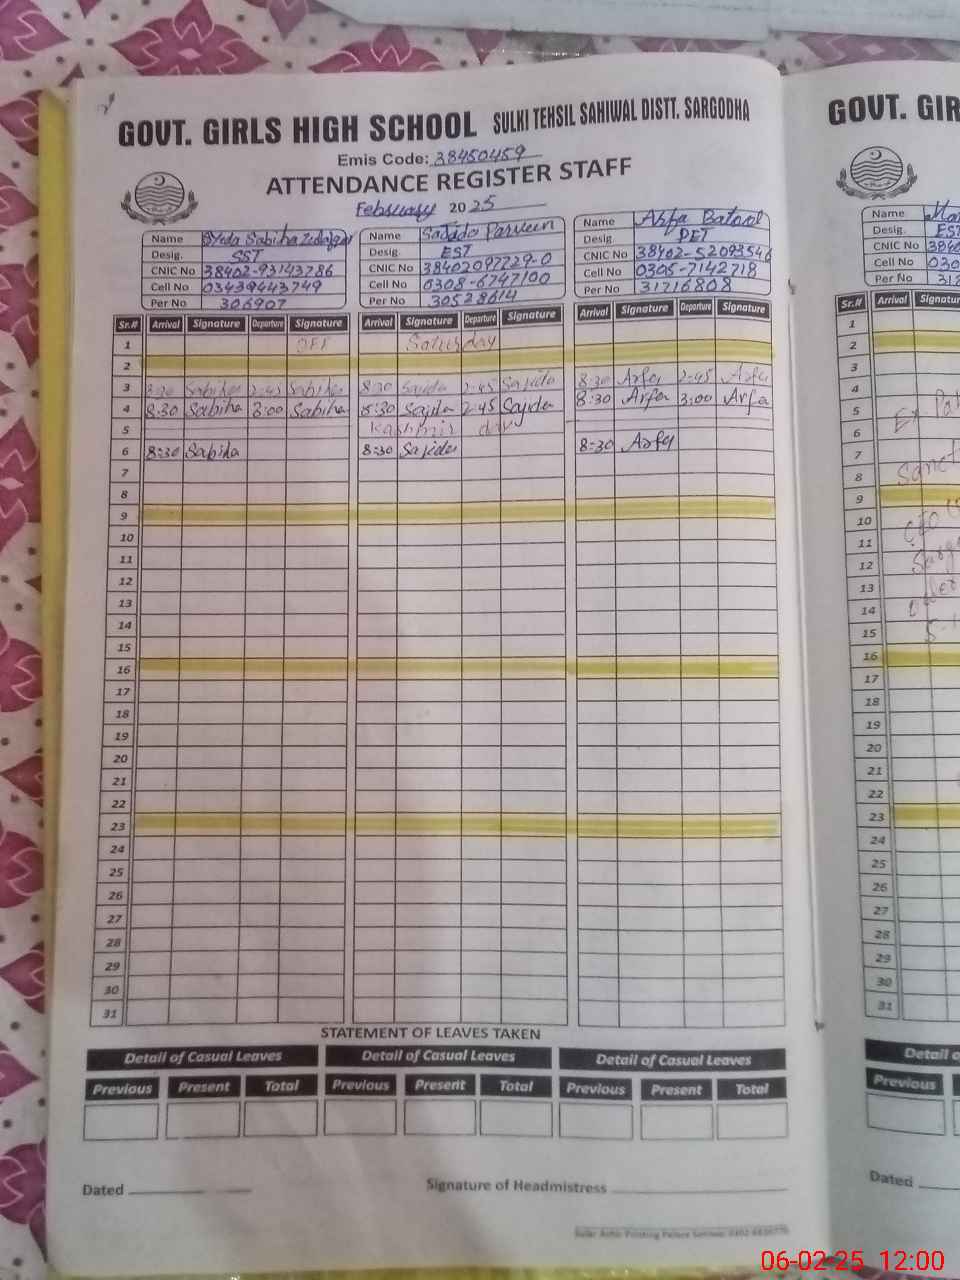 GOVT. GIRLS HIGH SCHOOL SULKI TEHSIL SAHIWAL DISTT. SARGODHA
Emis Code: 38450459
ATTENDANCE REGISTER STAFF
February 2025
Name Syeda Sabiha
Desig. SST
CNIC No 38402-93143786
Cell No 03439443749
Per No 306907
Name Sajida Parveen
Desig. EST
CNIC No 38402097729-0
Cell No 0308-6747100
Per No 30528614
Name Arfa Batool
Desig. PET
CNIC No 38402-52093546
Cell No 0305-7142718
Per No 31716808
Sr.# Arrival Signature Departure Signature Arrival Signature Departure Signature Arrival Signature Departure Signature
1 OFF Saturday
2
3 8:30 Sabiha 2:45 Sabiha 8:30 Sajida 2:45 Sajida 8:30 Arfa 2:45 Arfa
4 8:30 Sabiha 3:00 Sabiha 8:30 Sajida 2:45 Sajida 8:30 Arfa 3:00 Arfa
5 Kashmir day
6 8:30 Sabiha 8:30 Sajida 8:30 Arfa
7
8
9
10
11
12
13
14
15
16
17
18
19
20
21
22
23
24
25
26
27
28
29
30
31
STATEMENT OF LEAVES TAKEN
Detail of Casual Leaves Detail of Casual Leaves Detail of Casual Leaves
Previous Present Total Previous Present Total Previous Present Total
Dated
Signature of Headmistress
GOVT. GIR
Name
Desig. EST
CNIC No 3840
Cell No 030
Per No 318
Sr.# Arrival Signatur
1
2
3
4
5
6
7
8
9
10
11
12
13
14
15
16
17
18
19
20
21
22
23
24
25
26
27
28
29
30
31
Detail o
Previous
Dated
06-02-25 12:00